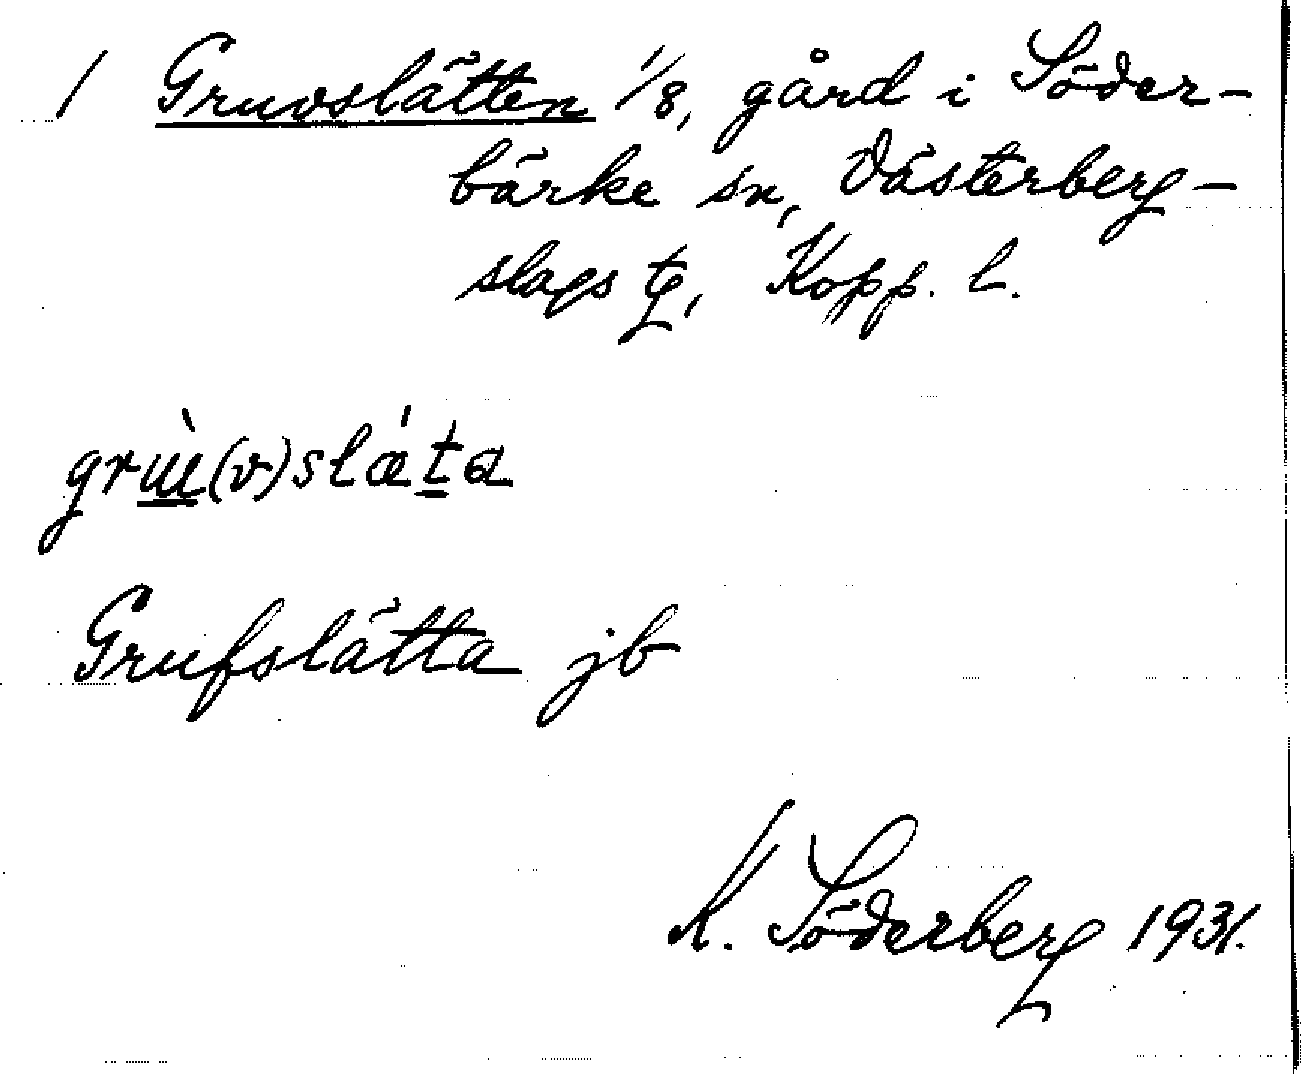 / Gruvslätten 1/8, gård i Söder-
bärke sn, Västerberg-
slags tg, Kopp. l.
grùɯ(v)slǽta
Grufslätta jb
K. Söderberg 1931.